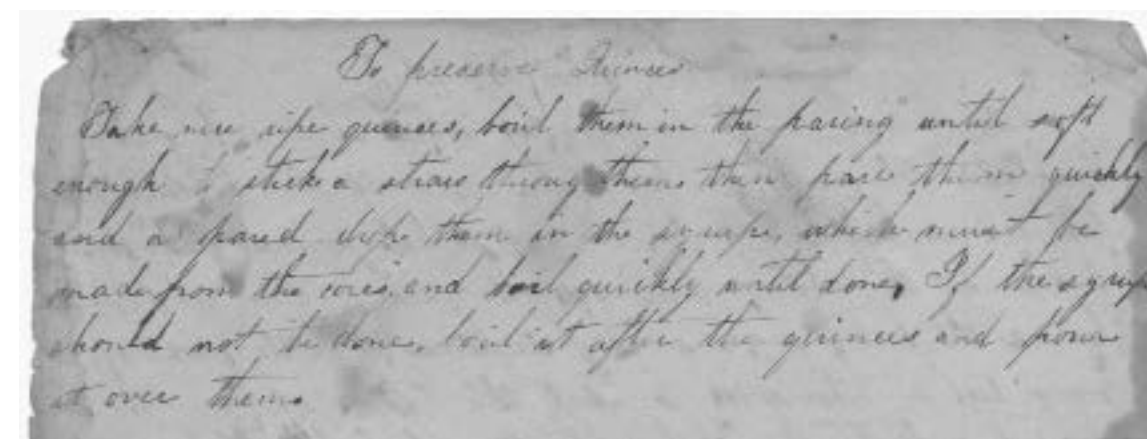 To preserve Quinces
Take nice ripe quinces, boil them in the paring until soft
enough to stick a straw throug them then pare them quickly
and pared them in the syrup, which must be
made from the cores, and boil quickly until done, If the syrup
should not be done, boil it after the quinces and pour
it over them.